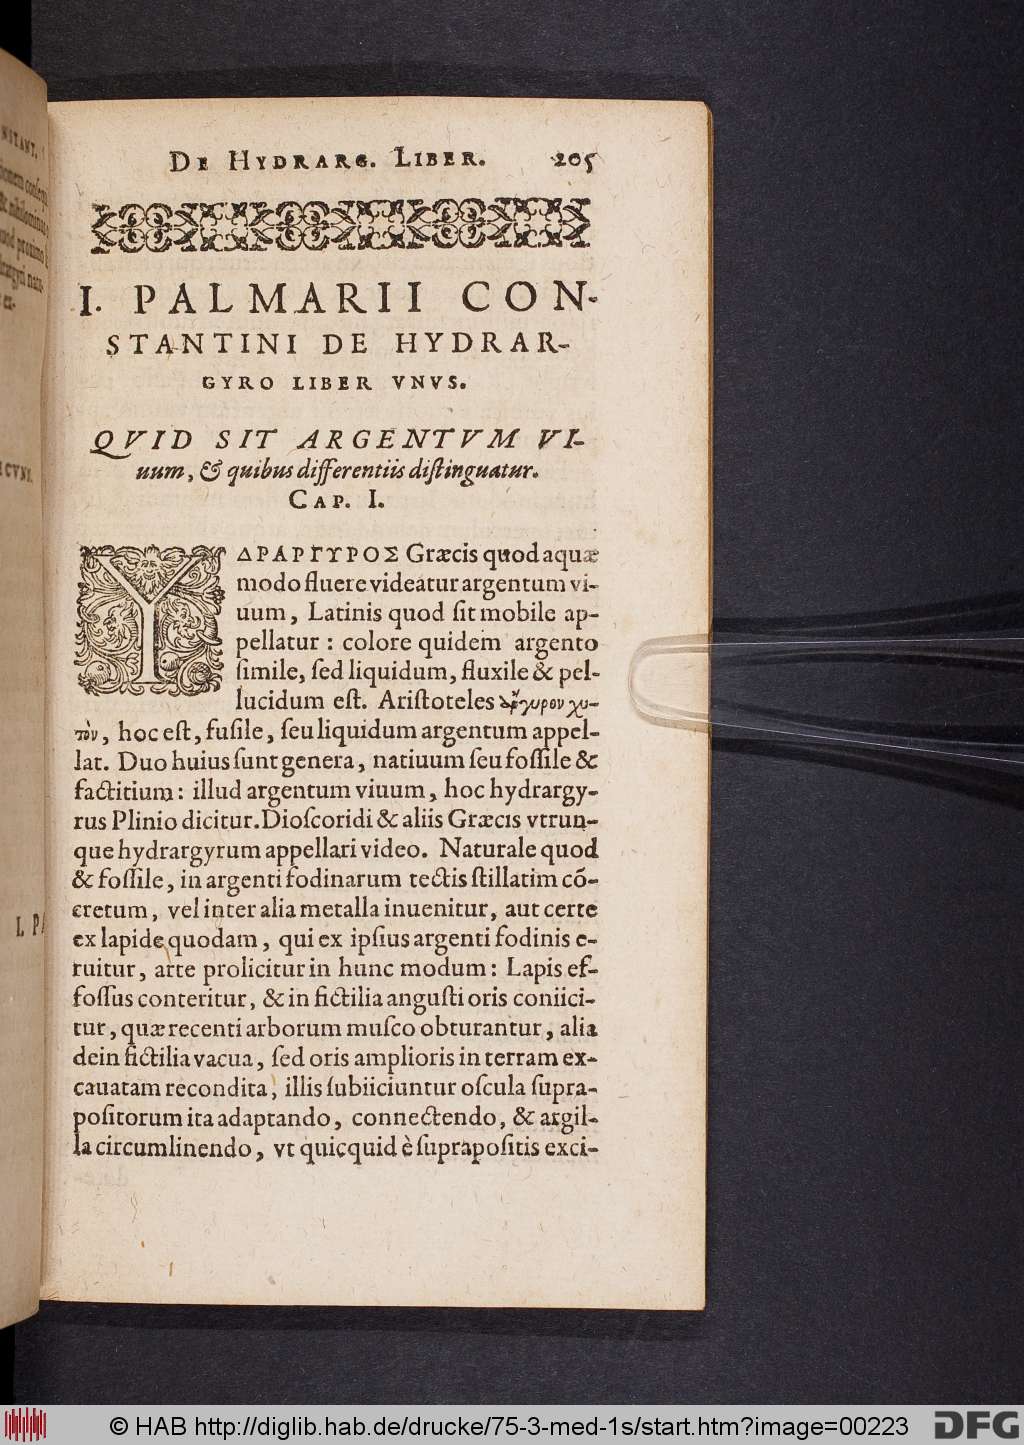 NSTANT.
De Hydrarg. Liber. 205
I. PALMARII CON-
STANTINI DE HYDRAR-
GYRO LIBER VNVS.
QVID SIT ARGENTVM VI-
uum, & quibus differentiis distinguatur.
Cap. I.
ΥΔΡΑΡΓΥΡΟΣ Græcis quod aquæ
modo fluere videatur argentum vi-
uum, Latinis quod sit mobile ap-
pellatur: colore quidem argento
simile, sed liquidum, fluxile & pel-
lucidum est. Aristoteles ἄργυρον χυ-
τὸν, hoc est, fusile, seu liquidum argentum appel-
lat. Duo huius sunt genera, natiuum seu fossile &
factitium: illud argentum viuum, hoc hydrargy-
rus Plinio dicitur. Dioscoridi & aliis Græcis vtrun-
que hydrargyrum appellari video. Naturale quod
& fossile, in argenti fodinarum tectis stillatim cõ-
cretum, vel inter alia metalla inuenitur, aut certe
ex lapide quodam, qui ex ipsius argenti fodinis e-
ruitur, arte prolicitur in hunc modum: Lapis ef-
fossus conteritur, & in fictilia angusti oris coniici-
tur, quæ recenti arborum musco obturantur, alia
dein fictilia vacua, sed oris amplioris in terram ex-
cauatam recondita, illis subiiciuntur oscula supra-
positorum ita adaptando, connectendo, & argil-
la circumlinendo, vt quicquid è suprapositis exci-
I. PA
© HAB http://diglib.hab.de/drucke/75-3-med-1s/start.htm?image=00223
DFG